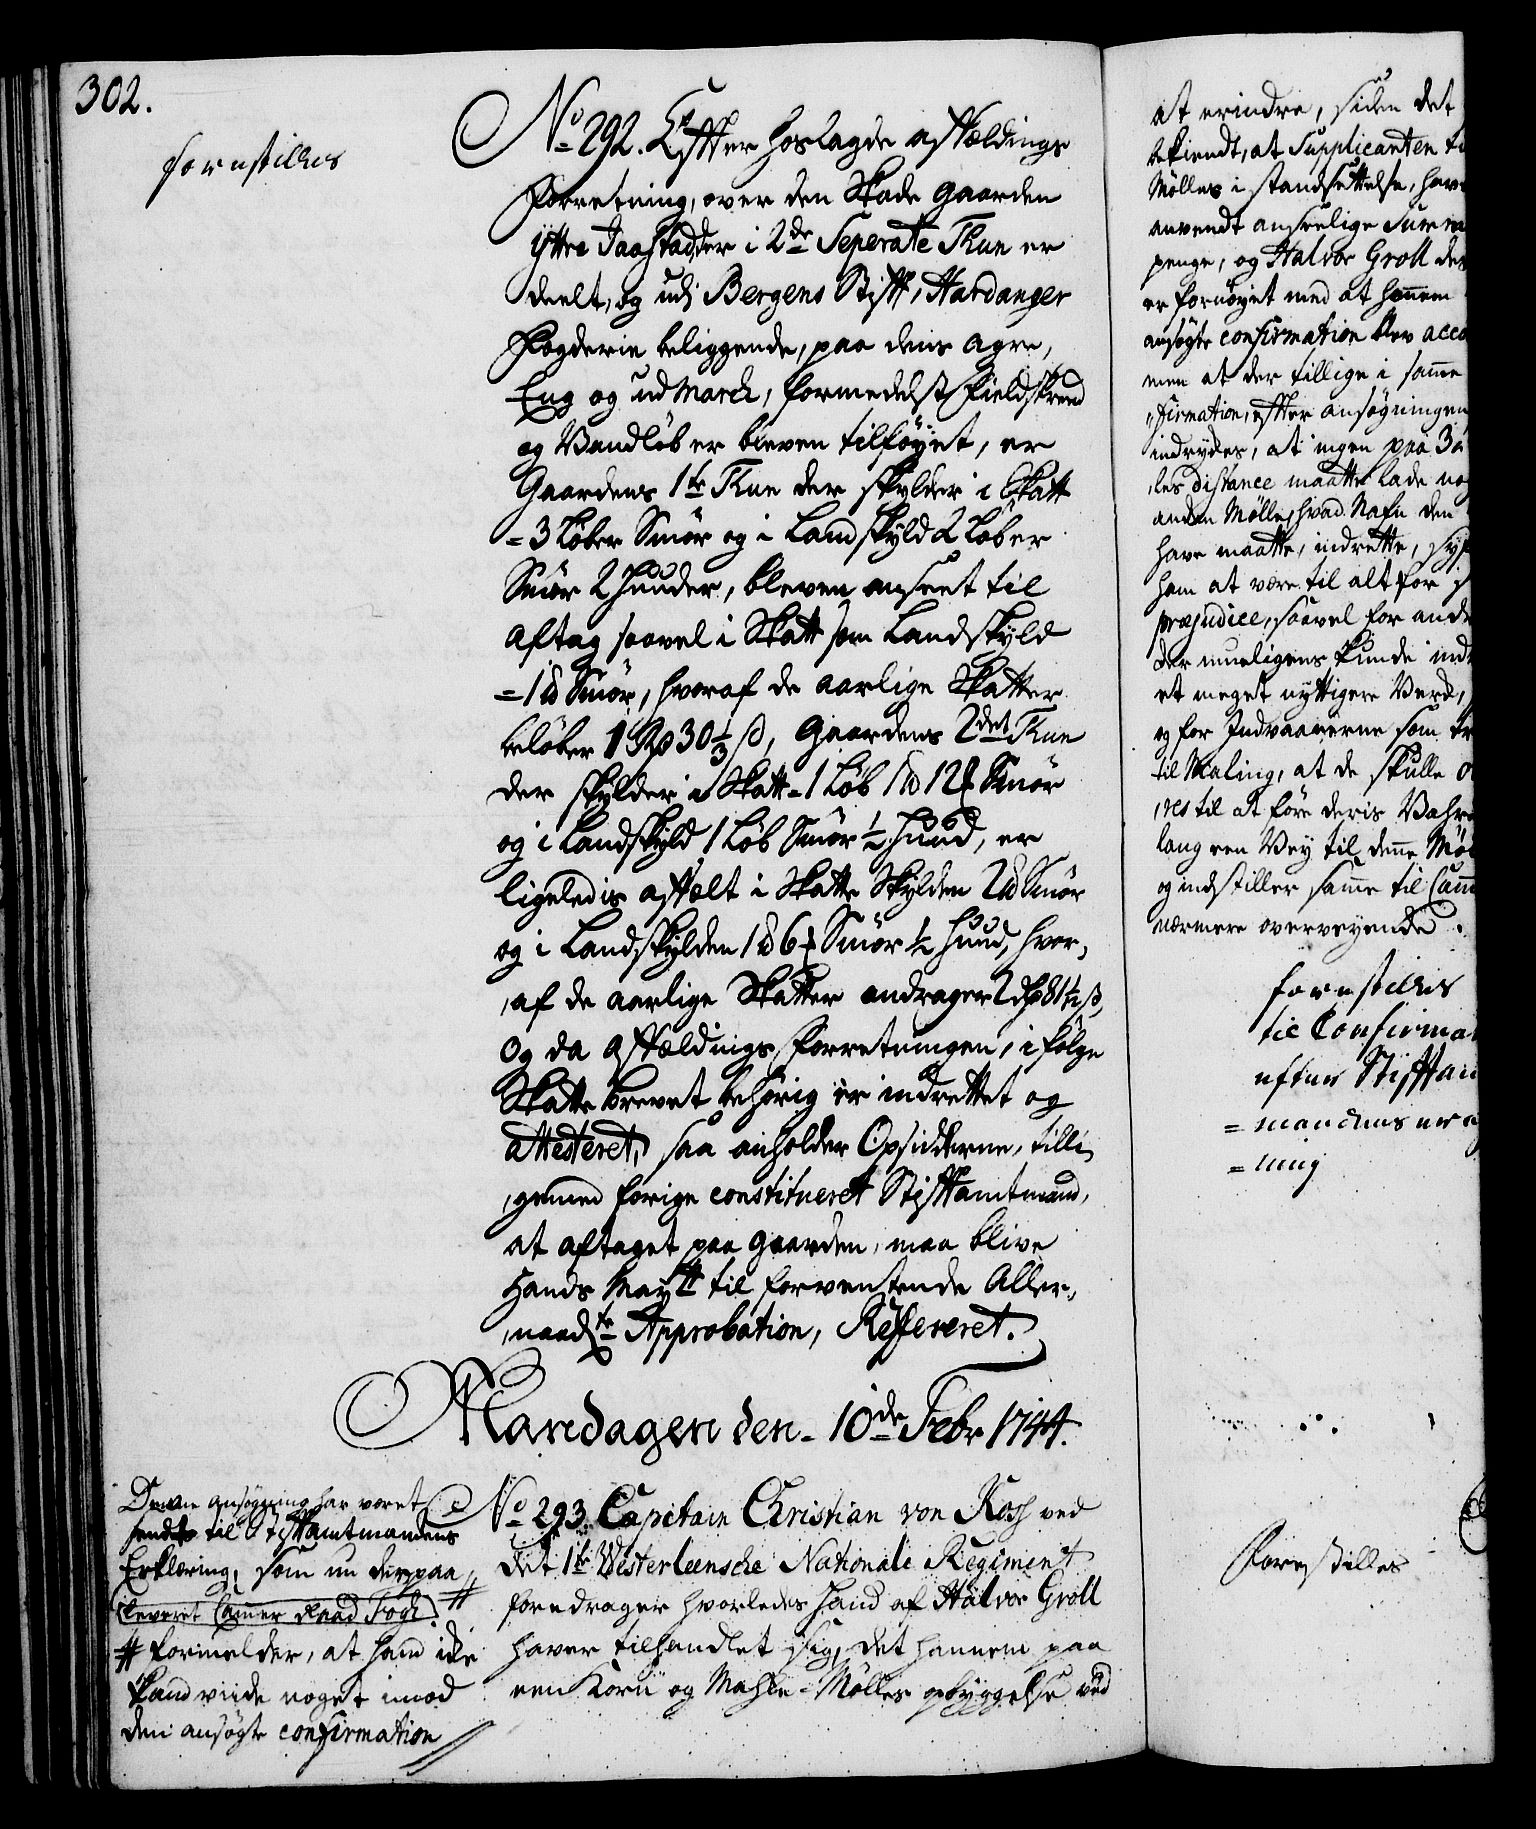 302.
forestilles
No 292. Effter hoslagde affældings
Forretning, over den Skade gaarden
yttre Jaastad, der i 2de Seperate Tun er
deelt, og udi Bergens Stifft, Hardanger
Fogderie beliggende, paa dens agre,
Eng og udMarck, formedelst Fieldskreed
og Vandløb er bleven tilføyet, er
Gaardens 1te Tun der skylder i Skatt
= 3 Løber Smør og i Landskyld 2 Løber
Smør 2 huuder, bleven anseet til
Aftag saavel i Skatt som Landskyld
= 1 ℔ Smør, hvoraf de aarlige Skatter
beløber 1 Rdr 30 1/3 ß, Gaardens 2det Tun
der skylder i Skatt = 1 Løb 1 ℔ 12 ℔ Smør
og i Landskyld 1 Løb Smør ½ huud, er
ligeledis affælt i Skatte Skylden 2 ℔ Smør
og i Landskylden 1 ℔ 6 ℔ Smør ½ huud, hvor,
,af de aarlige Skatter andrager 2 rdr 81½ ß,
Og da affældings forretningen, i følge
Skatte brevet behørig er indrettet og
attesteret, saa anholder Opsidderne, tilli,
,gemed forige constitueret Stifftamtmand,
at aftaget paa gaarden, maa blive
Hands Maytt til forventende Aller,
,naadste Approbation, Refereret.
Mandagen den 10de Febr 1744.
Denne ansøgning har været
sendt til Stifftamtmandens
Erklæring, som nu derpaa #
leveret Camer Raad Fogh
# formelder, at hand icke
kand viide noget imod
den ansøgte confirmation
No 293. Capitain Christian von Koss ved
det 1te Westerleenske Nationale Regiment
foredrager hvorledes hand af Halvor Groll
haver tilhandlet sig, det hannem paa
een Korn og Mahle-Mølles opbyggelse ved
at erindre, siden det
bekiendt, at Supplicanten
Mølles i standsettelse, hav
anvendt anseelige Summ
penge, og Halvor Groll des
er fornøyet med at hannem
ansøgte confirmation blev acco
men at der tillige i samme
"firmation, effter ansøgningen
indrydes, at ingen paa 3
,les distance maatte lade no
anden Mølle, hvad Nafn den
have maatte, indrette, sy
ham at være til alt for
præjudice, saavel for and
der mueligens kunde ind
et meget nyttigere Verck,
og for Indvaanerne som
til Maling, at de skulle
,res til at føre deris Vahr
lang een Vey til denne Mø
og indstiller samme til Cam
nærmere overveyende.
forestilles
til Confirma
efter Stifftam
= mandens
= ning
Forestilles